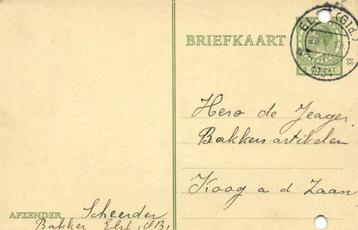 BRIEFKAART
ELST (GLD.)
1934
Hero de Jeager.
Bakkersartikelen
Koog a d Zaan
AFZENDER Scheerder
Bakker Elst